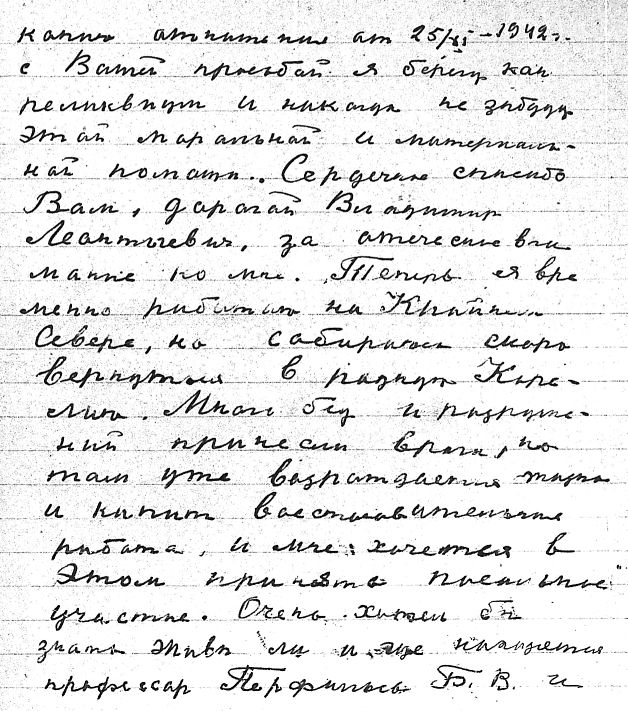 копию отношения от 25/XI – 1942 г.
с Вашей просьбой я берегу как
реликвию и никогда не забуду
этой моральной и материаль-
ной помощи.. Сердечное спасибо
Вам, дорогой Владимир
Леонтьевич, за отеческое вни
мание ко мне. Теперь я вре
менно работаю на Крайнем
Севере, но собираюсь скоро
вернуться в родную Каре-
лию. Много бед и разруше-
ний принесли враги, но
там уже возрождается жизнь
и кипит восстановительная
работа, и мне хочется в
этом принять посильное
участие. Очень хотел бы
знать живы ли и где находится
профессор Перфильев Б. В. и